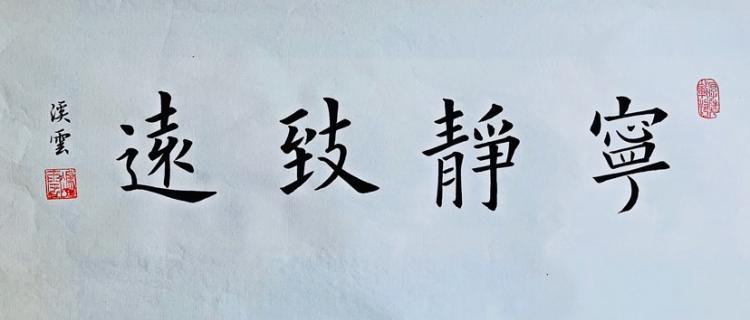 寧靜致遠
溪雲